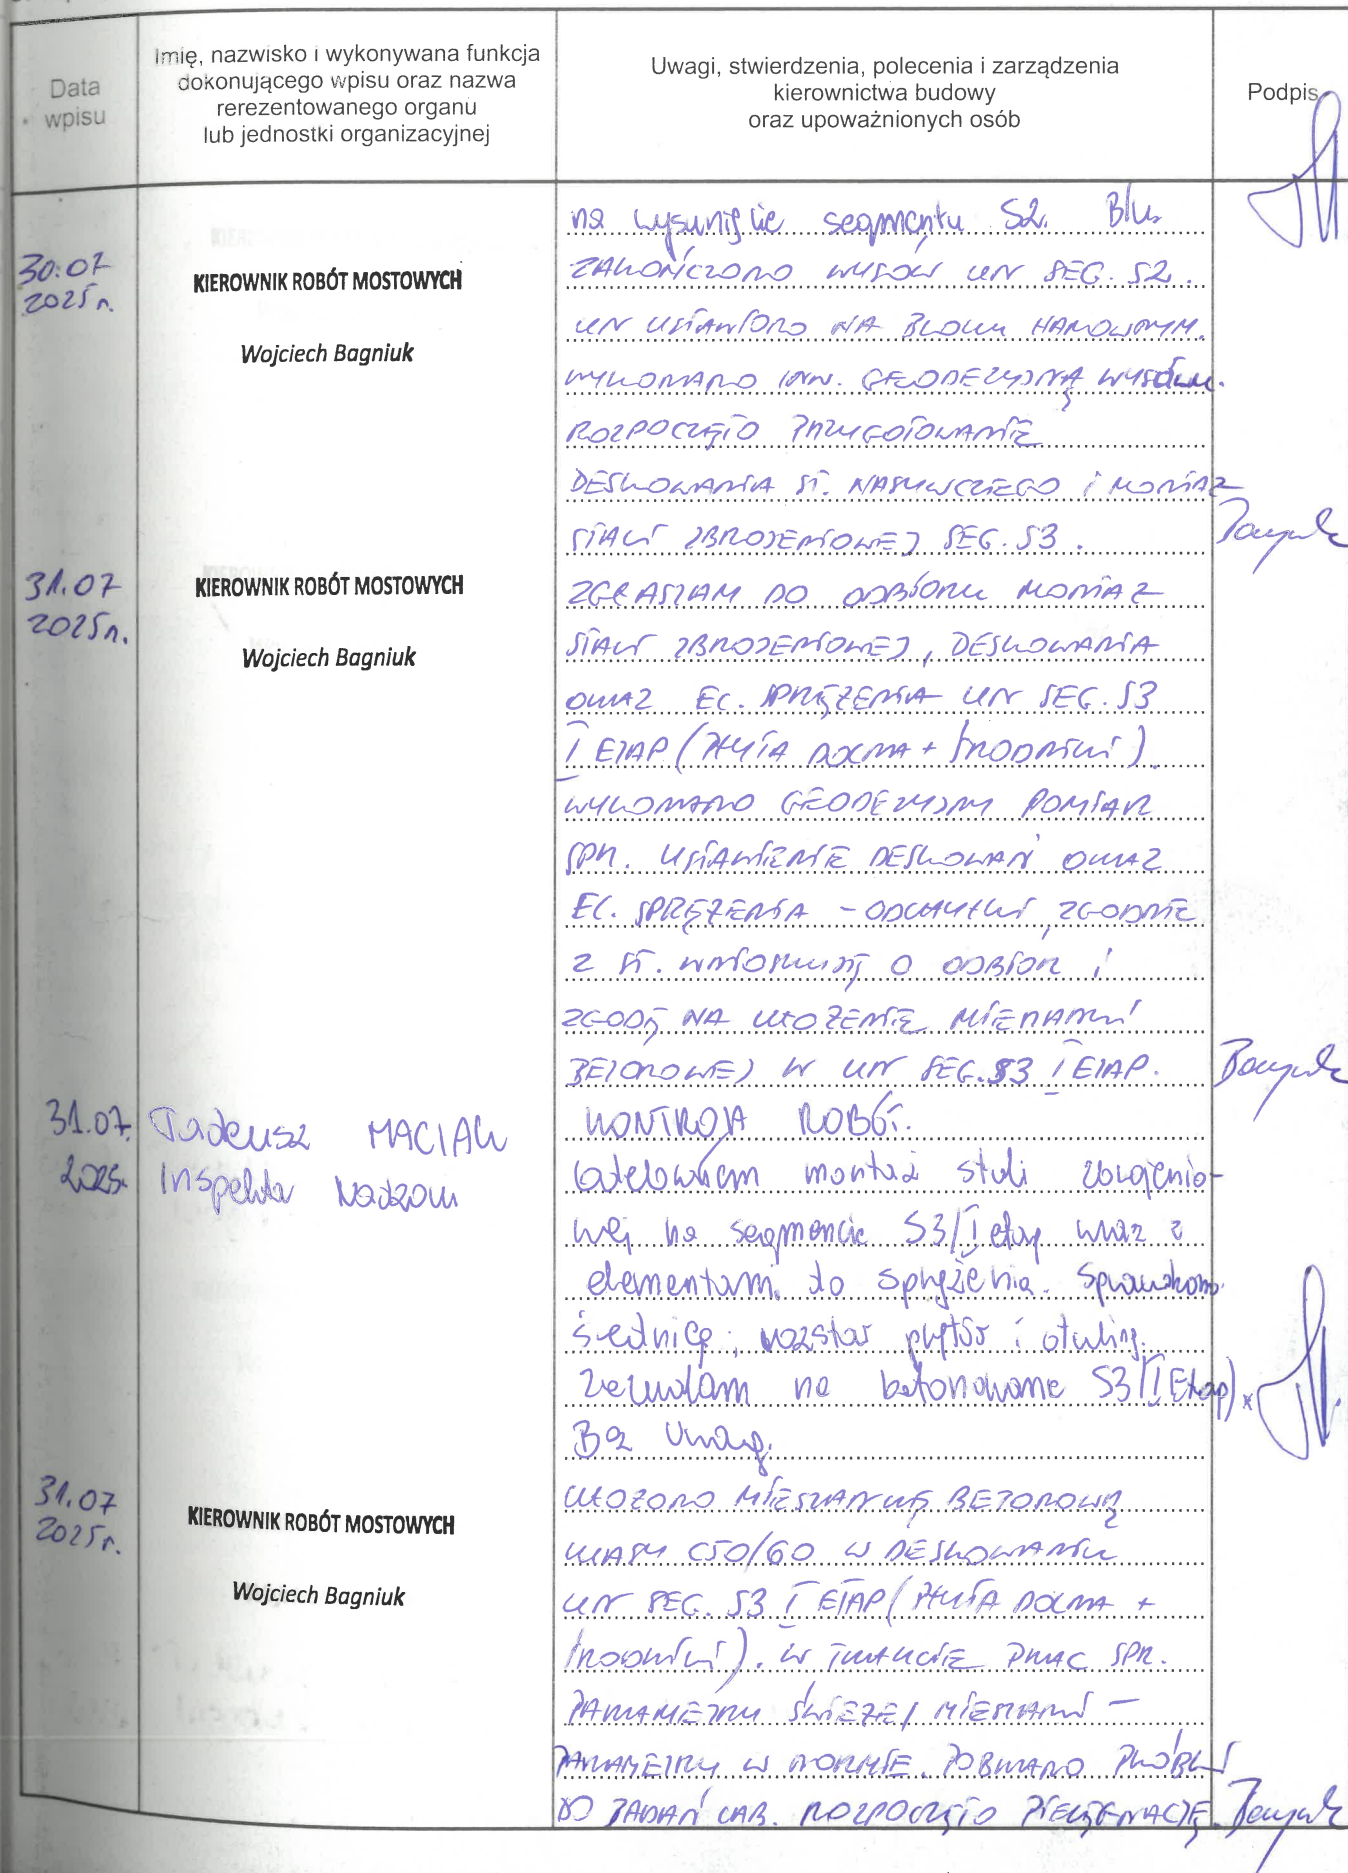 Data
wpisu
Imię, nazwisko i wykonywana funkcja
dokonującego wpisu oraz nazwa
rerezentowanego organu
lub jednostki organizacyjnej
Uwagi, stwierdzenia, polecenia i zarządzenia
kierownictwa budowy
oraz upoważnionych osób
Podpis
na wysunięcie segmentu S2. B/u.
30.07
2025r.
KIEROWNIK ROBÓT MOSTOWYCH
Wojciech Bagniuk
ZAKOŃCZONO WYSÓW UN SEG. S2.
UN USTAWIONO NA BLOKU HAMOWNYM.
WYKONANO INW. GEODEZYJNĄ WYSÓWU.
ROZPOCZĘTO PRZYGOTOWANIE
DESKOWANIA ST. NASUWCZEGO i MONTAŻ
STALI ZBROJENIOWEJ SEG. S3.
31.07
2025r.
KIEROWNIK ROBÓT MOSTOWYCH
Wojciech Bagniuk
ZGŁASZAM DO ODBIORU MONTAŻ
STALI ZBROJENIOWEJ, DESKOWANIA
ORAZ EL. SPRĘŻENIA UN SEG. S3
I ETAP (PŁYTA DOLNA + ŚRODNIKI).
WYKONANO GEODEZYJNY POMIAR
SPR. USTAWIENIE DESKOWAŃ ORAZ
EL. SPRĘŻENIA - ODCHYŁKI ZGODNIE
Z ST. WNIOSKUJĘ O ODBIÓR i
ZGODĘ NA UŁOŻENIE MIESZANKI
BETONOWEJ W UN SEG. S3 I ETAP.
31.07.
2025.
Tadeusz MACIAK
Inspektor Nadzoru
KONTROLA ROBÓT.
Odebrałem montaż stali zbrojenio-
wej na segmencie S3/I etap wraz z
elementami do sprężenia. Sprawdzono
średnicę, rozstaw prętów i otulinę.
Zezwalam na betonowanie S3/I Etap).
Bez Uwag.
31.07
2025r.
KIEROWNIK ROBÓT MOSTOWYCH
Wojciech Bagniuk
UŁOŻONO MIESZANKĘ BETONOWĄ
KLASY C50/60 W DESKOWANIU
UN SEG. S3 I ETAP (PŁYTA DOLNA +
ŚRODNIKI). W TRAKCIE PRAC SPR.
PARAMETRY ŚWIEŻEJ MIESZANKI -
PARAMETRY W NORMIE. POBRANO PRÓBKI
DO BADAŃ LAB. ROZPOCZĘTO PIELĘGNACJĘ.